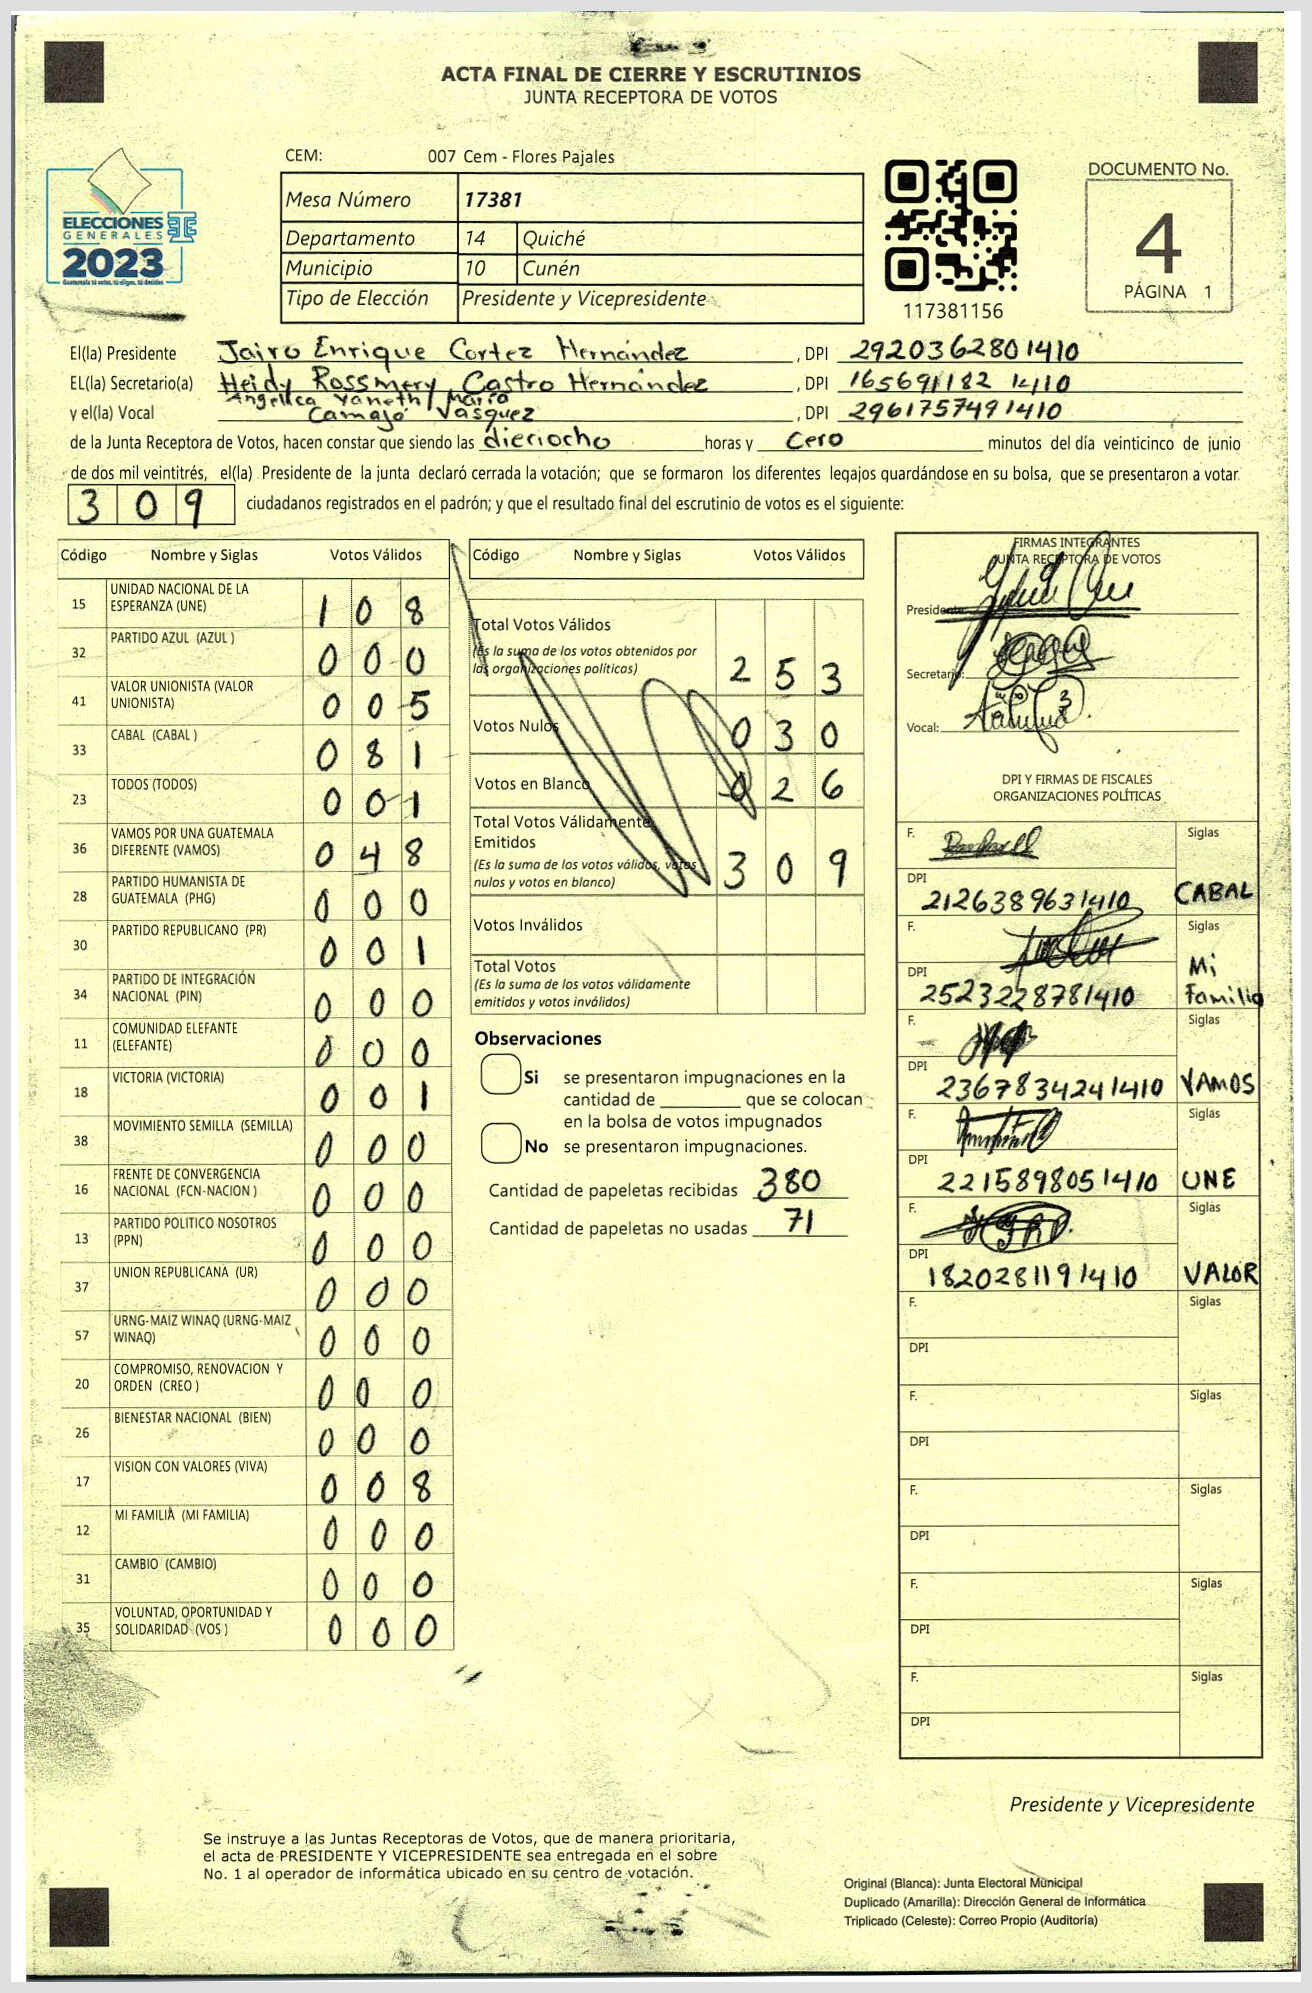 ACTA FINAL DE CIERRE Y ESCRUTINIOS
JUNTA RECEPTORA DE VOTOS
CEM: 007 Cem - Flores Pajales
DOCUMENTO No.
4
PÁGINA 1
ELECCIONES
GENERALES
2023
Guatemala tú votas, tú eliges, tú decides
Mesa Número 17381
Departamento 14 Quiché
Municipio 10 Cunén
Tipo de Elección Presidente y Vicepresidente
117381156
El(la) Presidente Jairo Enrique Cortez Hernández , DPI 2920362801410
EL(la) Secretario(a) Heidy Rossmery Castro Hernández , DPI 165691182 1410
Angelica Yaneth María
y el(la) Vocal Camajó Vásquez , DPI 2961757491410
de la Junta Receptora de Votos, hacen constar que siendo las dieciocho horas y Cero minutos del día veinticinco de junio
de dos mil veintitrés, el(la) Presidente de la junta declaró cerrada la votación; que se formaron los diferentes legajos quardándose en su bolsa, que se presentaron a votar
309 ciudadanos registrados en el padrón; y que el resultado final del escrutinio de votos es el siguiente:
Código Nombre y Siglas Votos Válidos
15 UNIDAD NACIONAL DE LA ESPERANZA (UNE) 108
32 PARTIDO AZUL (AZUL ) 000
41 VALOR UNIONISTA (VALOR UNIONISTA) 005
33 CABAL (CABAL ) 081
23 TODOS (TODOS) 001
36 VAMOS POR UNA GUATEMALA DIFERENTE (VAMOS) 048
28 PARTIDO HUMANISTA DE GUATEMALA (PHG) 000
30 PARTIDO REPUBLICANO (PR) 001
34 PARTIDO DE INTEGRACIÓN NACIONAL (PIN) 000
11 COMUNIDAD ELEFANTE (ELEFANTE) 000
18 VICTORIA (VICTORIA) 001
38 MOVIMIENTO SEMILLA (SEMILLA) 000
16 FRENTE DE CONVERGENCIA NACIONAL (FCN-NACION ) 000
13 PARTIDO POLITICO NOSOTROS (PPN) 000
37 UNION REPUBLICANA (UR) 000
57 URNG-MAIZ WINAQ (URNG-MAIZ WINAQ) 000
20 COMPROMISO, RENOVACION Y ORDEN (CREO ) 000
26 BIENESTAR NACIONAL (BIEN) 000
17 VISION CON VALORES (VIVA) 008
12 MI FAMILIA (MI FAMILIA) 000
31 CAMBIO (CAMBIO) 000
35 VOLUNTAD, OPORTUNIDAD Y SOLIDARIDAD (VOS ) 000
Código Nombre y Siglas Votos Válidos
Total Votos Válidos 253
(Es la suma de los votos obtenidos por
las organizaciones politicas)
Votos Nulos 030
Votos en Blanco 026
Total Votos Válidamente
Emitidos 309
(Es la suma de los votos válidos, votos
nulos y votos en blanco)
Votos Inválidos
Total Votos
(Es la suma de los votos válidamente
emitidos y votos inválidos)
Observaciones
Si se presentaron impugnaciones en la
cantidad de ________ que se colocan
en la bolsa de votos impugnados
No se presentaron impugnaciones.
Cantidad de papeletas recibidas 380
Cantidad de papeletas no usadas 71
FIRMAS INTEGRANTES
JUNTA RECEPTORA DE VOTOS
Presidente:
Secretario:
Vocal:
DPI Y FIRMAS DE FISCALES
ORGANIZACIONES POLÍTICAS
F. Siglas
DPI 2126389631410 CABAL
F. Siglas
DPI 2523228781410 Mi Familia
F. Siglas
DPI 2367834241410 VAMOS
F. Siglas
DPI 2215898051410 UNE
F. Siglas
DPI 1820281191410 VALOR
F. Siglas
DPI
F. Siglas
DPI
F. Siglas
DPI
F. Siglas
DPI
F. Siglas
DPI
Presidente y Vicepresidente
Se instruye a las Juntas Receptoras de Votos, que de manera prioritaria,
el acta de PRESIDENTE Y VICEPRESIDENTE sea entregada en el sobre
No. 1 al operador de informática ubicado en su centro de votación.
Original (Blanca): Junta Electoral Municipal
Duplicado (Amarilla): Dirección General de Informática
Triplicado (Celeste): Correo Propio (Auditoría)